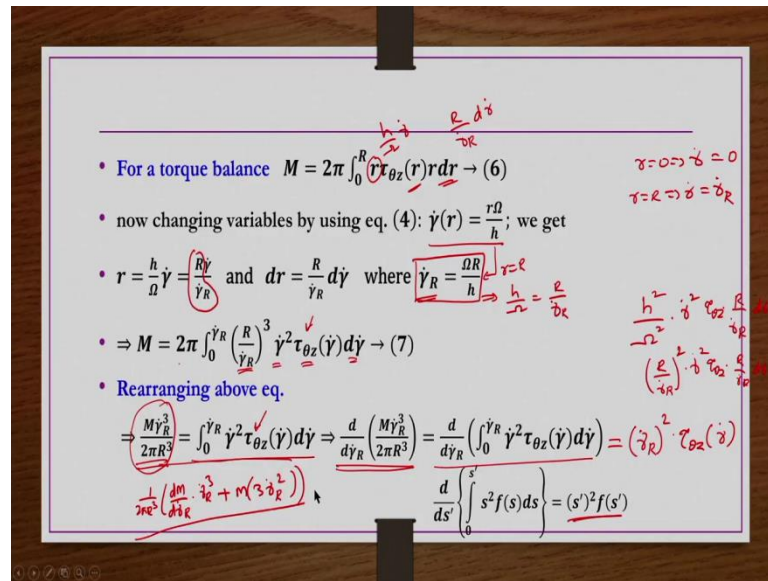 h/Ω γ̇   R/γ̇_R dγ̇
• For a torque balance M = 2π ∫₀ᴿ rτ_θz(r)rdr → (6)
r=0 ⇒ γ̇ = 0
r=R ⇒ γ̇ = γ̇_R
• now changing variables by using eq. (4): γ̇(r) = rΩ/h; we get
• r = h/Ω γ̇ = Rγ̇/γ̇_R and dr = R/γ̇_R dγ̇ where γ̇_R = ΩR/h
r=R
⇒ h/Ω = R/γ̇_R
h²/Ω² · γ̇² τ_θz R/γ̇_R
• ⇒ M = 2π ∫₀^γ̇_R (R/γ̇_R)³ γ̇²τ_θz(γ̇)dγ̇ → (7)
(R/γ̇_R)² · γ̇² τ_θz · R/γ̇_R
• Rearranging above eq.
⇒ Mγ̇_R³/2πR³ = ∫₀^γ̇_R γ̇²τ_θz(γ̇)dγ̇ ⇒ d/dγ̇_R (Mγ̇_R³/2πR³) = d/dγ̇_R (∫₀^γ̇_R γ̇²τ_θz(γ̇)dγ̇) = (γ̇_R)² · τ_θz(γ̇)
1/2πR³ (dM/dγ̇_R · γ̇_R³ + M(3γ̇_R²))
d/ds' {∫₀^s' s²f(s)ds} = (s')²f(s')